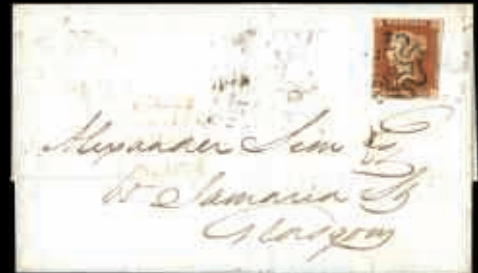 Alexander Sim Esq
60 Jamaica St
Glasgow